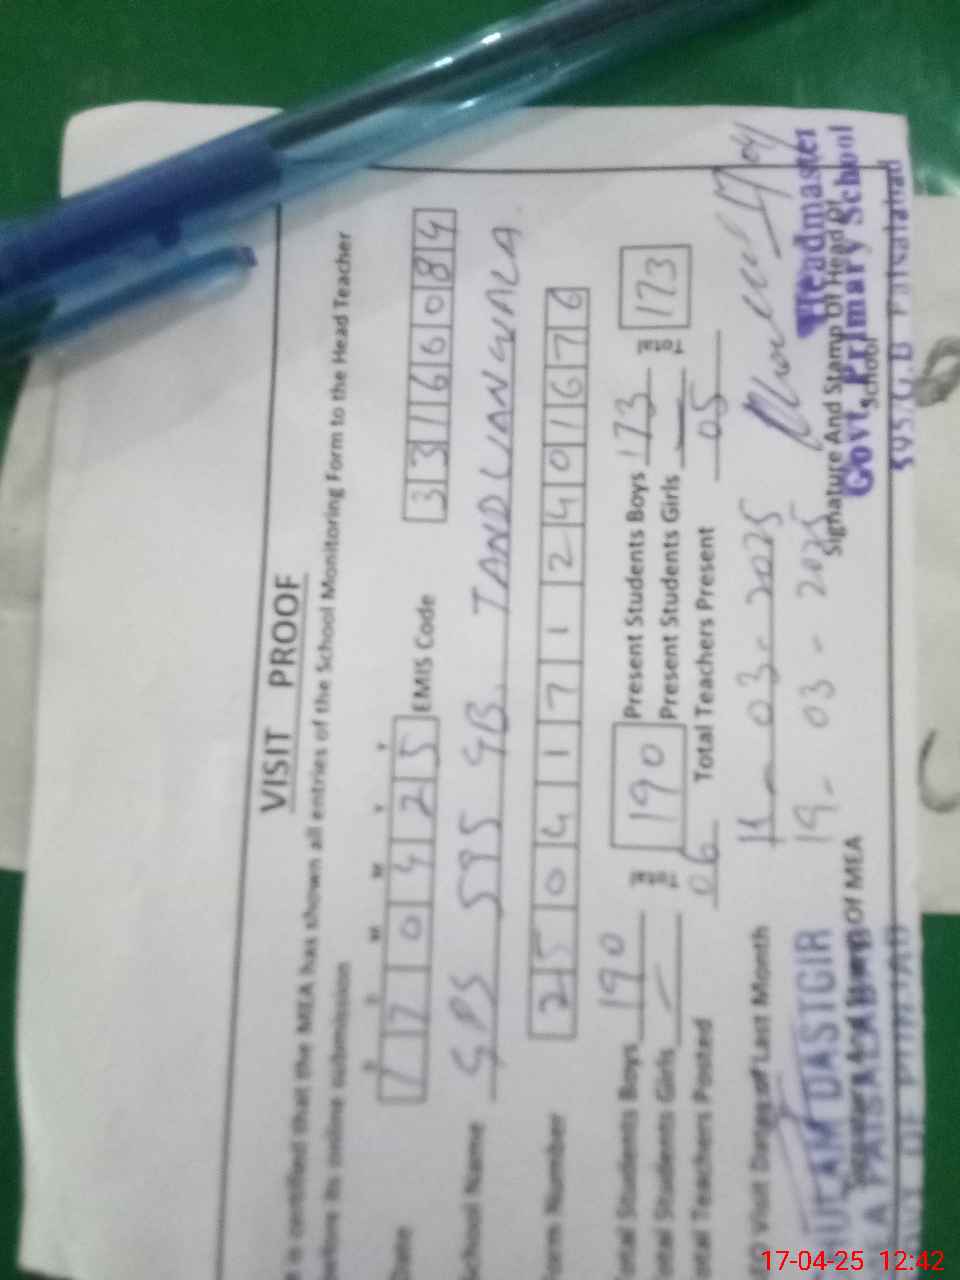 VISIT PROOF
is certified that the MEA has shown all entries of the School Monitoring Form to the Head Teacher
before its online submission
D D M M Y Y
Date 170425 EMIS Code 33160084
School Name GPS 595 GB. TANDLIANWALA
Form Number 250417112401676
Total Students Boys 190 190 Present Students Boys 173 173
Total Students Girls — Present Students Girls —
Total Teachers Posted 06 Total Teachers Present 05
Visit Dates of Last Month 11-03-2025
19-03-2025
17/04
DASTGIR
Of MEA
Signature And Stamp Of Head Of School
Headmaster
Govt. Primary School
595/G.B Faisalabad
17-04-25 12:42